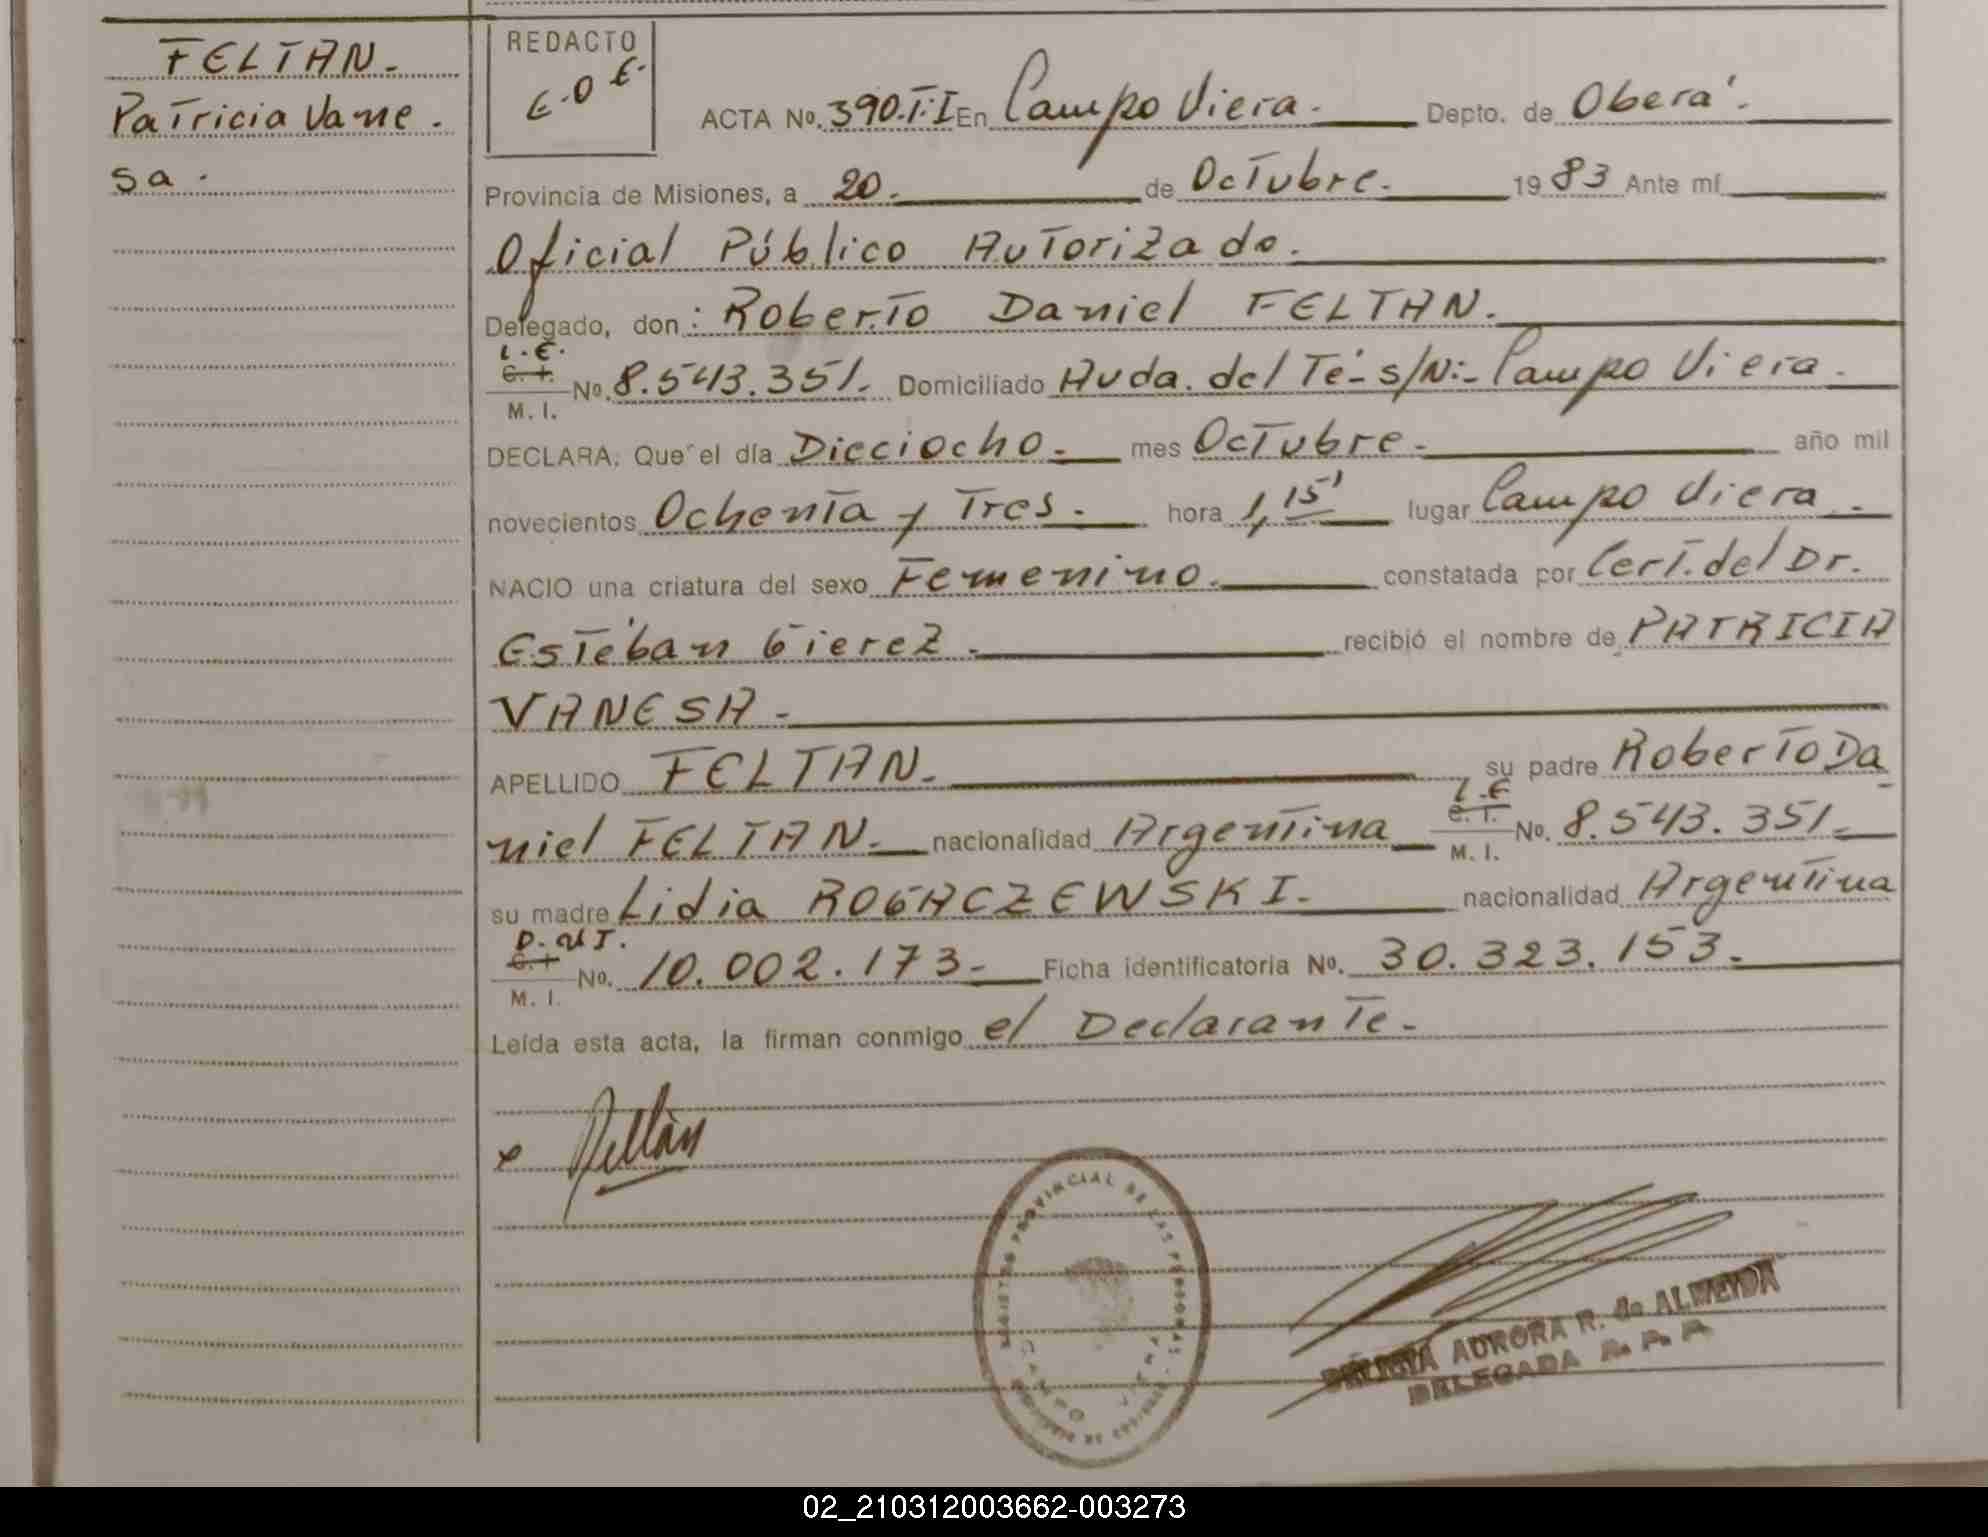 FELTAN.
Patricia Vane.
sa.
REDACTO
E.O E.
ACTA No. 390.T.I En Campo Viera. Depto. de Oberá.
Provincia de Misiones, a 20. de Octubre. 1983 Ante mí
Oficial Público Autorizado.
Delegado, don: Roberto Daniel FELTAN.
L.E.
C. I.
M. I.
No. 8.543.351. Domiciliado Avda. del Té- s/N:- Campo Viera.
DECLARA: Que el día Dieciocho. mes Octubre. año mil
novecientos Ochenta y Tres. hora 1,15' lugar Campo Viera.
NACIO una criatura del sexo Femenino. constatada por Cert. del Dr.
Estéban Gierez. recibió el nombre de PATRICIA
VANESA.
APELLIDO FELTAN. su padre Roberto Da
niel FELTAN. nacionalidad Argentina L.E C. I. M. I. No. 8.543.351.
su madre Lidia ROGACZEWSKI. nacionalidad Argentina
D.NI.
C. I
M. I.
No. 10.002.173- Ficha identificatoria No. 30.323.153.
Leída esta acta, la firman conmigo el Declarante.
x Feltán
REGISTRO PROVINCIAL DE LAS PERSONAS
CAMPO VIERA
AURORA R. de ALMEIDA
DELEGADA
02_210312003662-003273